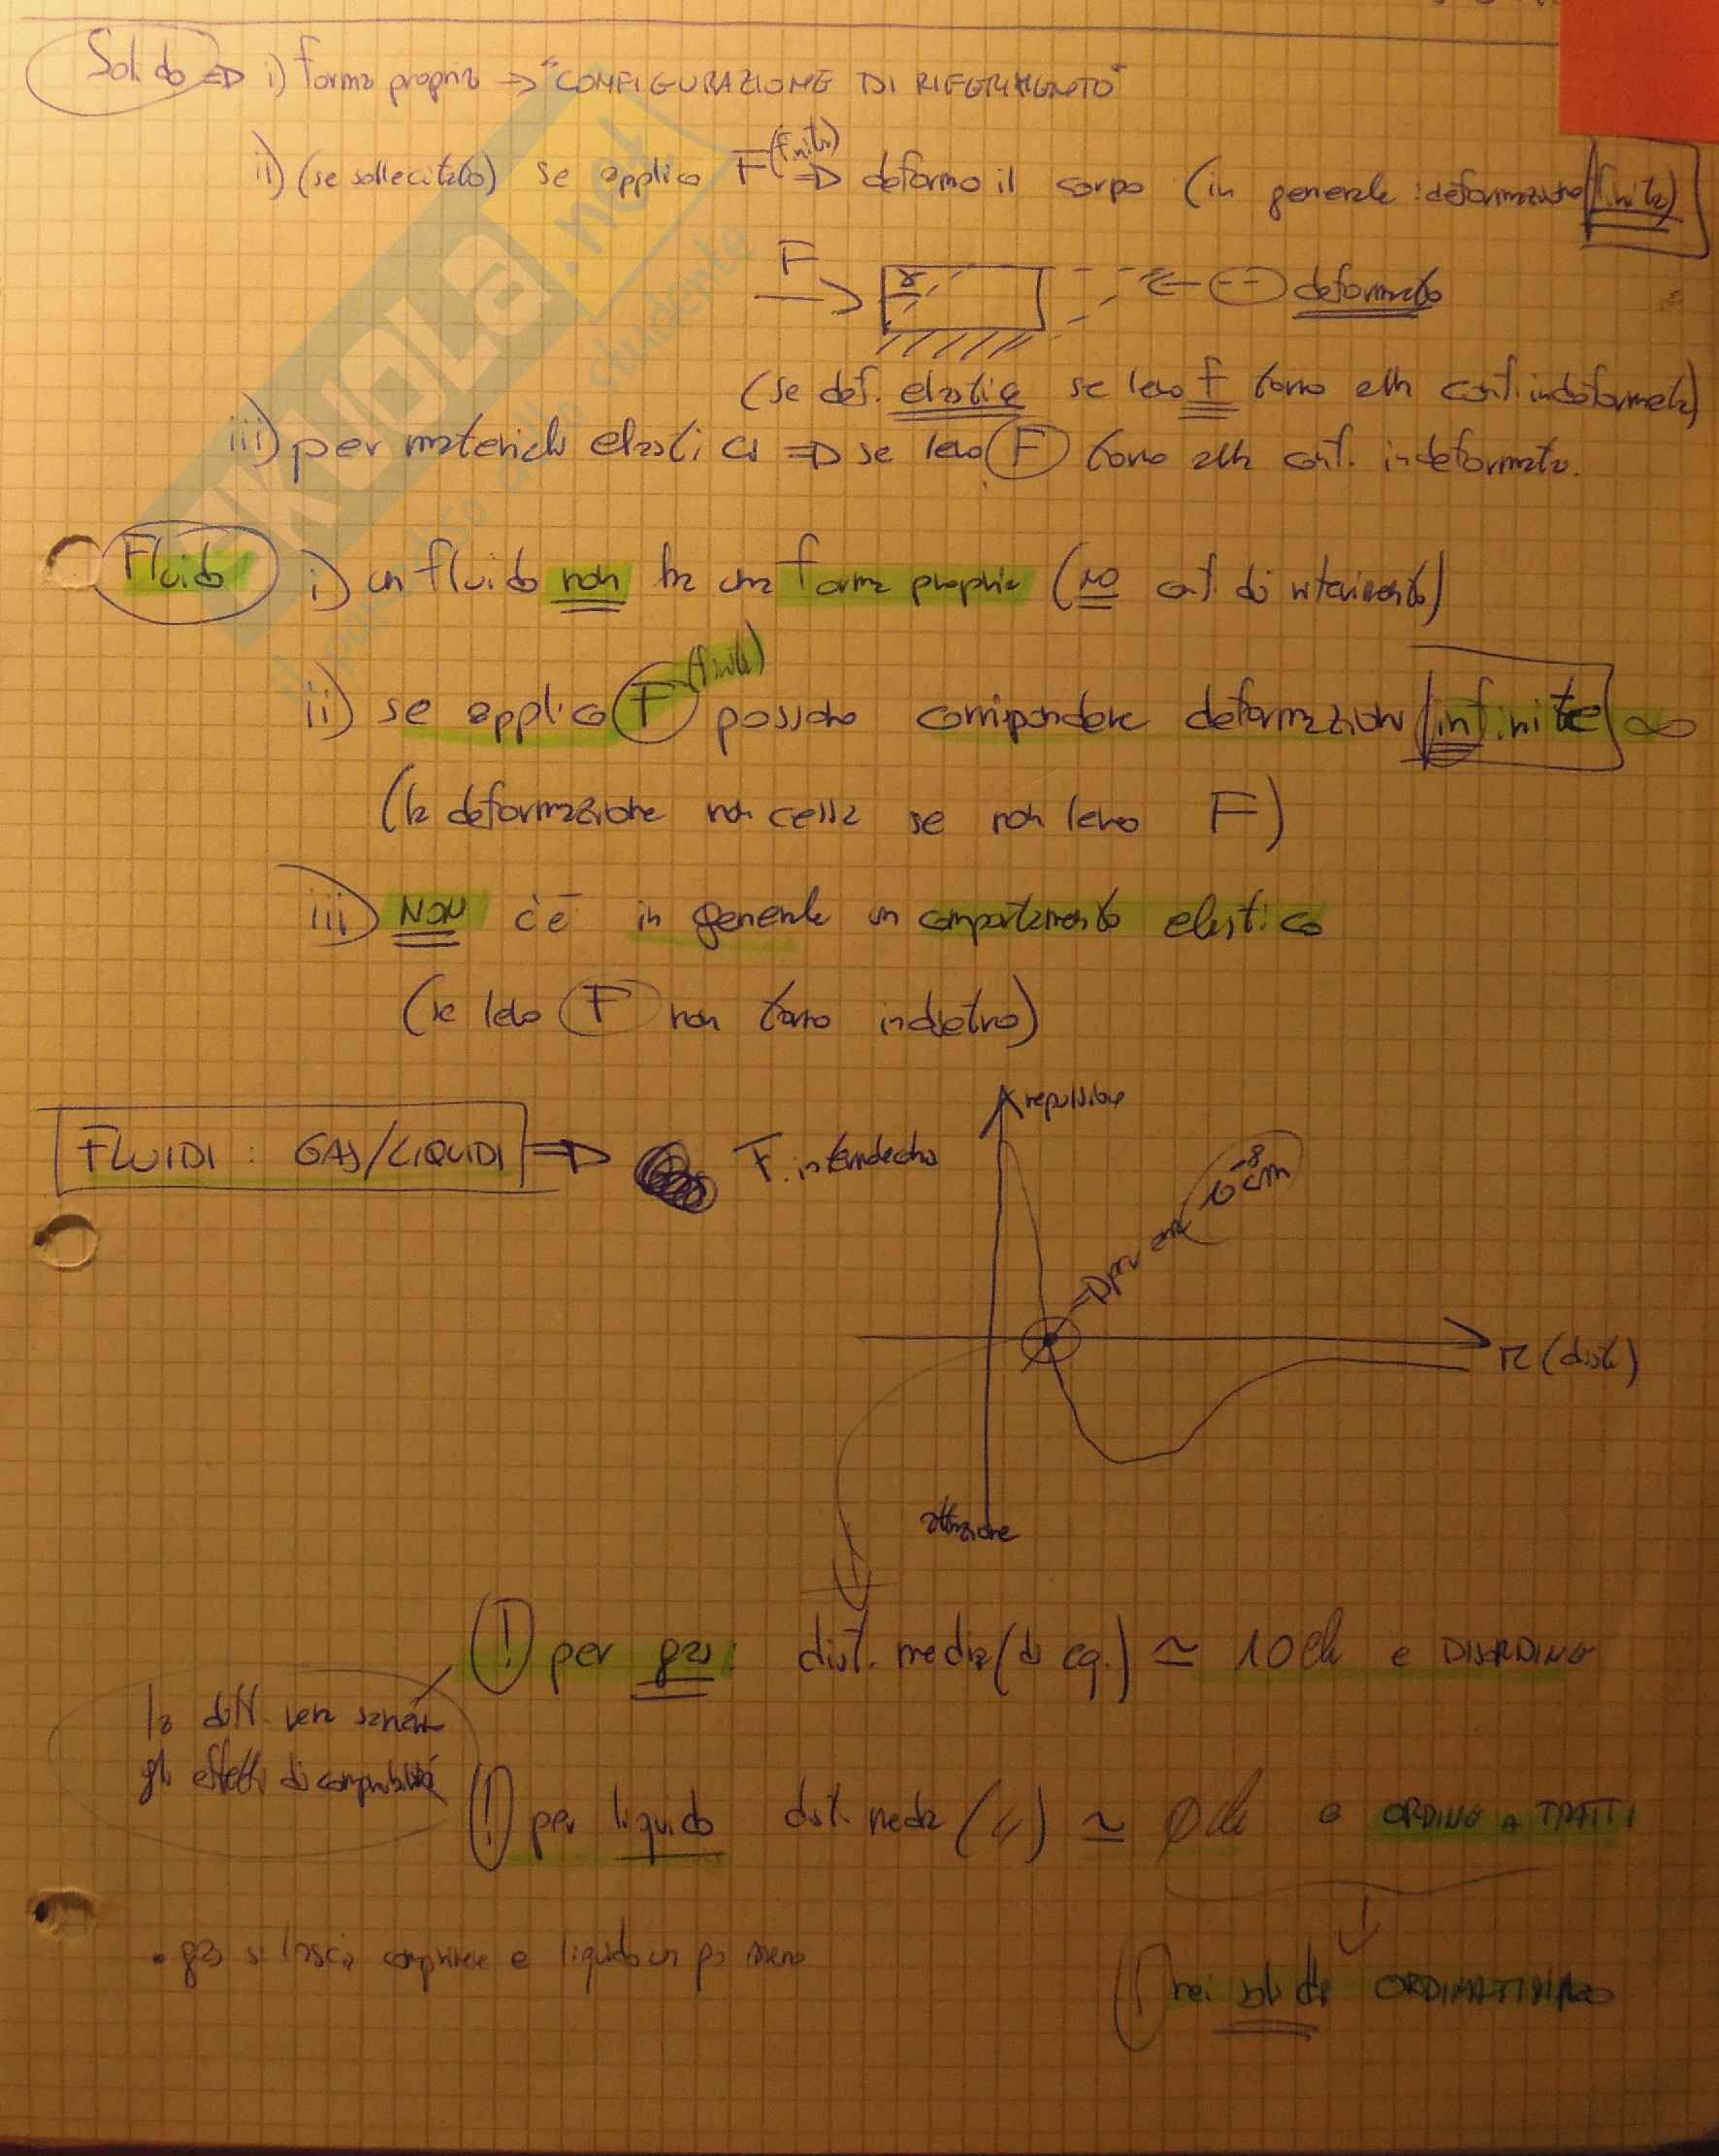 Solido => i) forma propria → "CONFIGURAZIONE DI RIFERIMENTO"
ii) (se sollecitato) se applico F (finita) => deformo il corpo (in generale: deformazione finita)
F
γ
deformato
(se def. elastica se levo F torno alla conf. indeformata)
iii) per materiali elastici => se levo F torno alla conf. indeformata.
Fluido i) un fluido non ha una forma propria (no conf. di riferimento)
ii) se applico F (finita) possono corrispondere deformazioni infinite ∞
(la deformazione non cessa se non levo F)
iii) NON c'è in generale un comportamento elastico
(se levo F non torno indietro)
repulsione
FLUIDI: GAS/LIQUIDI => F. intermolecolari
=> per 10⁻⁸ cm
r (dist.)
attrazione
! per gas: dist. media (di eq.) ≃ 10 d e DISORDINE
la diff. verrà
gli effetti di comprimibilità
! per liquido dist. media (") ≃ d e ORDINE A TRATTI
• gas si lascia comprimere e liquido un po' meno
! nei solidi ORDINATISSIMO
SKUOLA.net
il paradiso dello studente